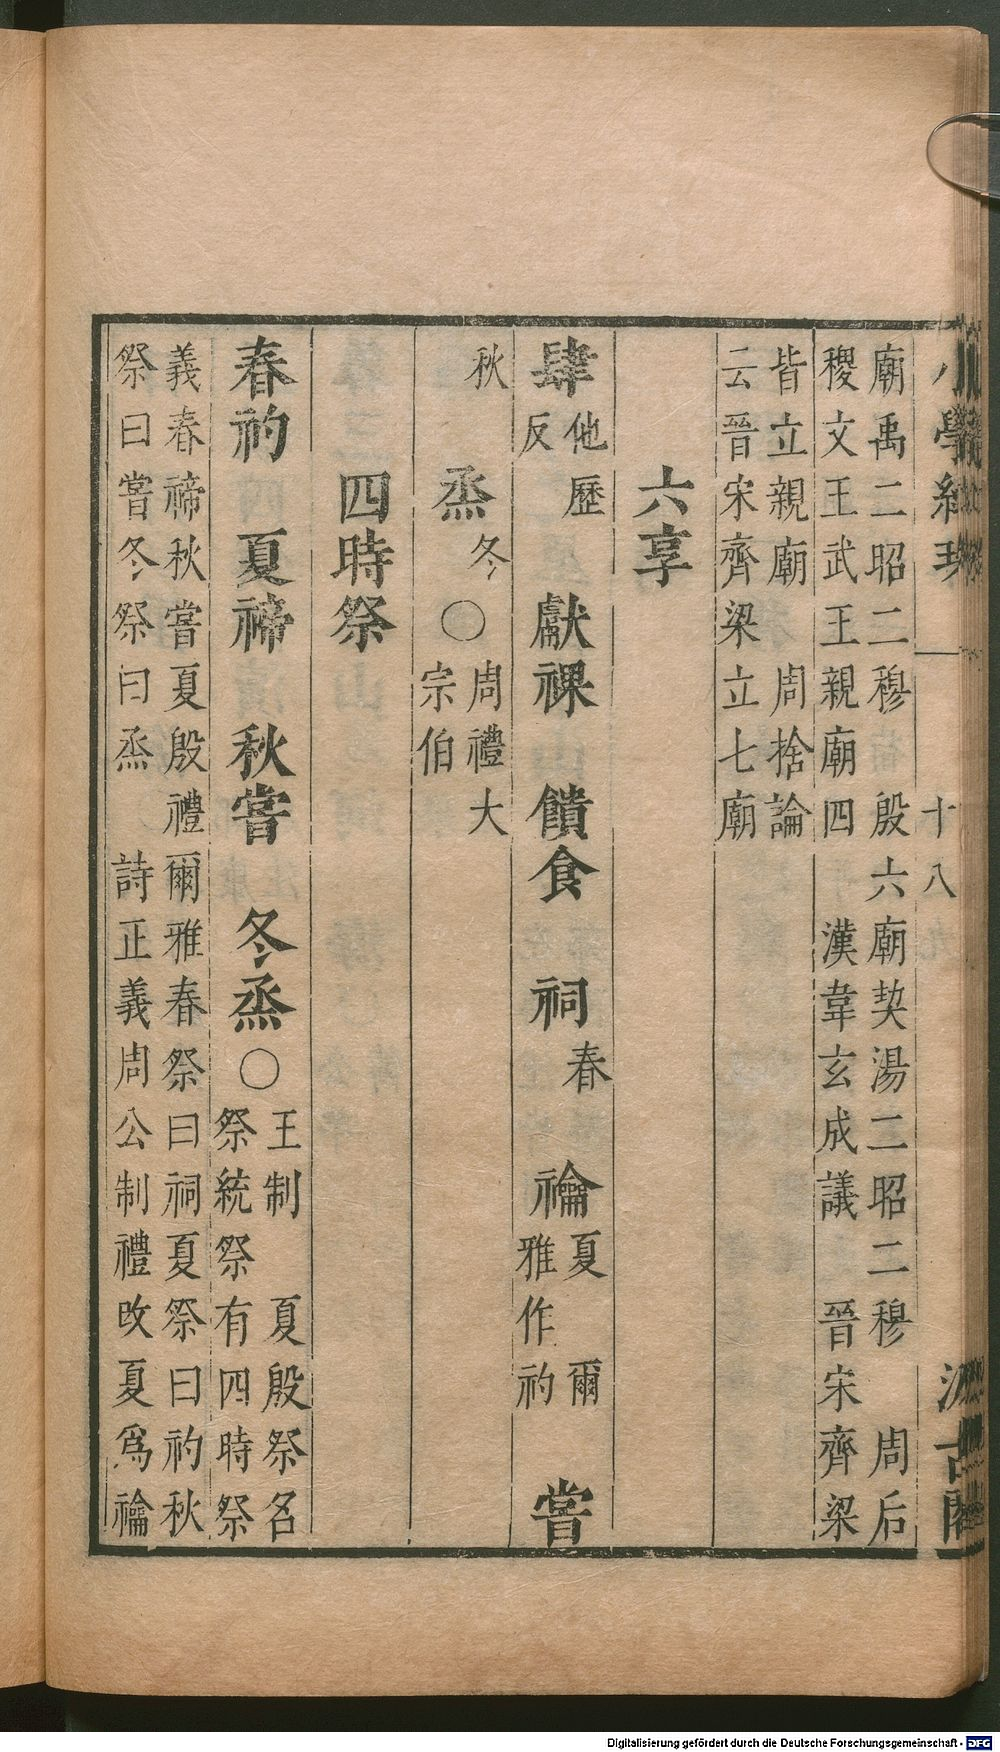 廟禹二昭二穆　殷六廟契湯二昭二穆　周后
稷文王武王親廟四　漢韋玄成議　晉宋齊梁
皆立親廟　周捨論
云晉宋齊梁立七廟
六享
肆他歷反　獻祼　饋食　祠春　禴夏爾雅作礿　嘗
秋　烝冬○周禮大宗伯
四時祭
春礿　夏禘　秋嘗　冬烝○王制　夏殷祭名祭統祭有四時祭
義春禘秋嘗夏殷禮爾雅春祭曰祠夏祭曰礿秋
祭曰嘗冬祭曰烝　詩正義周公制禮改夏為禴
十八
Digitalisierung gefördert durch die Deutsche Forschungsgemeinschaft - DFG